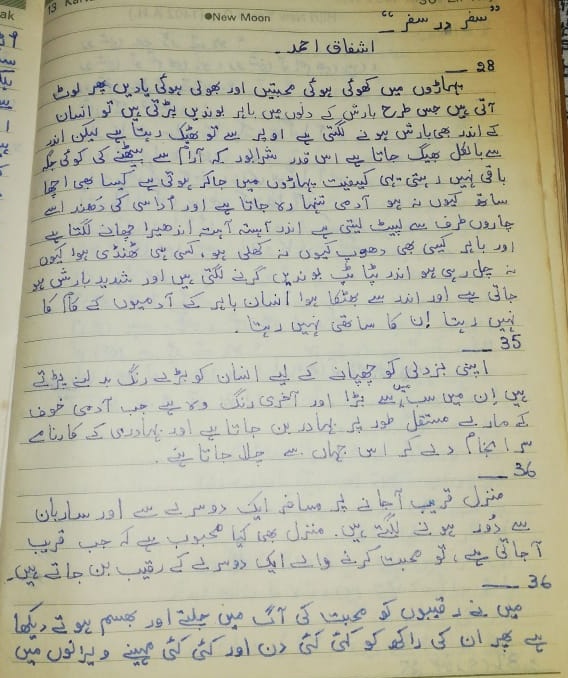 13
●New Moon
ak
"سفر در سفر"
اشفاق احمد۔
28
پہاڑوں میں کھوئی ہوئی محبتیں اور بھولی ہوئی یادیں پھر لوٹ
آتی ہیں جس طرح بارش کے دنوں میں باہر بوندیں پڑتی ہیں تو انسان
کے اندر بھی بارش ہونے لگتی ہے اوپر سے تو ٹھیک رہتا ہے لیکن اندر
سے بالکل بھیگ جاتا ہے اس قدر شرابور کہ آرام سے بیٹھنے کی کوئی جگہ
باقی نہیں رہتی یہی کیفیت پہاڑوں میں جاکر ہوتی ہے کیسا بھی اچھا
ساتھ کیوں نہ ہو آدمی تنہا رہ جاتا ہے اور اُداسی کی دُھند اسے
چاروں طرف سے لپیٹ لیتی ہے اندر آہستہ آہستہ اندھیرا چھانے لگتا ہے
اور باہر کیسی بھی دھوپ کیوں نہ کھلی ہو، کیسی ہی ٹھنڈی ہوا کیوں
نہ چل رہی ہو اندر ٹپا ٹپ بوندیں گرنے لگتی ہیں اور شدید بارش ہو
جاتی ہے اور اندر سے بھیگا ہوا انسان باہر کے آدمیوں کے کام کا
نہیں رہتا اِن کا ساتھی نہیں رہتا۔
35
اپنی بزدلی کو چھپانے کے لیے انسان کو بڑے رنگ بدلنے پڑتے
ہیں اِن میں سب میں سے بڑا اور آخری رنگ وہ ہے جب آدمی خوف
کے مارے مستقل طور پر بہادر بن جاتا ہے اور بہادری کے کارنامے
سر انجام دے کر اس جہاں سے چلا جاتا ہے۔
36
منزل قریب آجانے پر مسافر ایک دوسرے سے اور ساربان
سے دُور ہونے لگتے ہیں۔ منزل بھی کیا محبوب ہے کہ جب قریب
آجاتی ہے، تو محبت کرنے والے ایک دوسرے کے رقیب بن جاتے ہیں۔
36
میں نے رقیبوں کو محبت کی آگ میں جلتے اور بھسم ہوتے دیکھا
ہے پھر ان کی راکھ کو کئی کئی دن اور کئی کئی مہینے ویرانوں میں